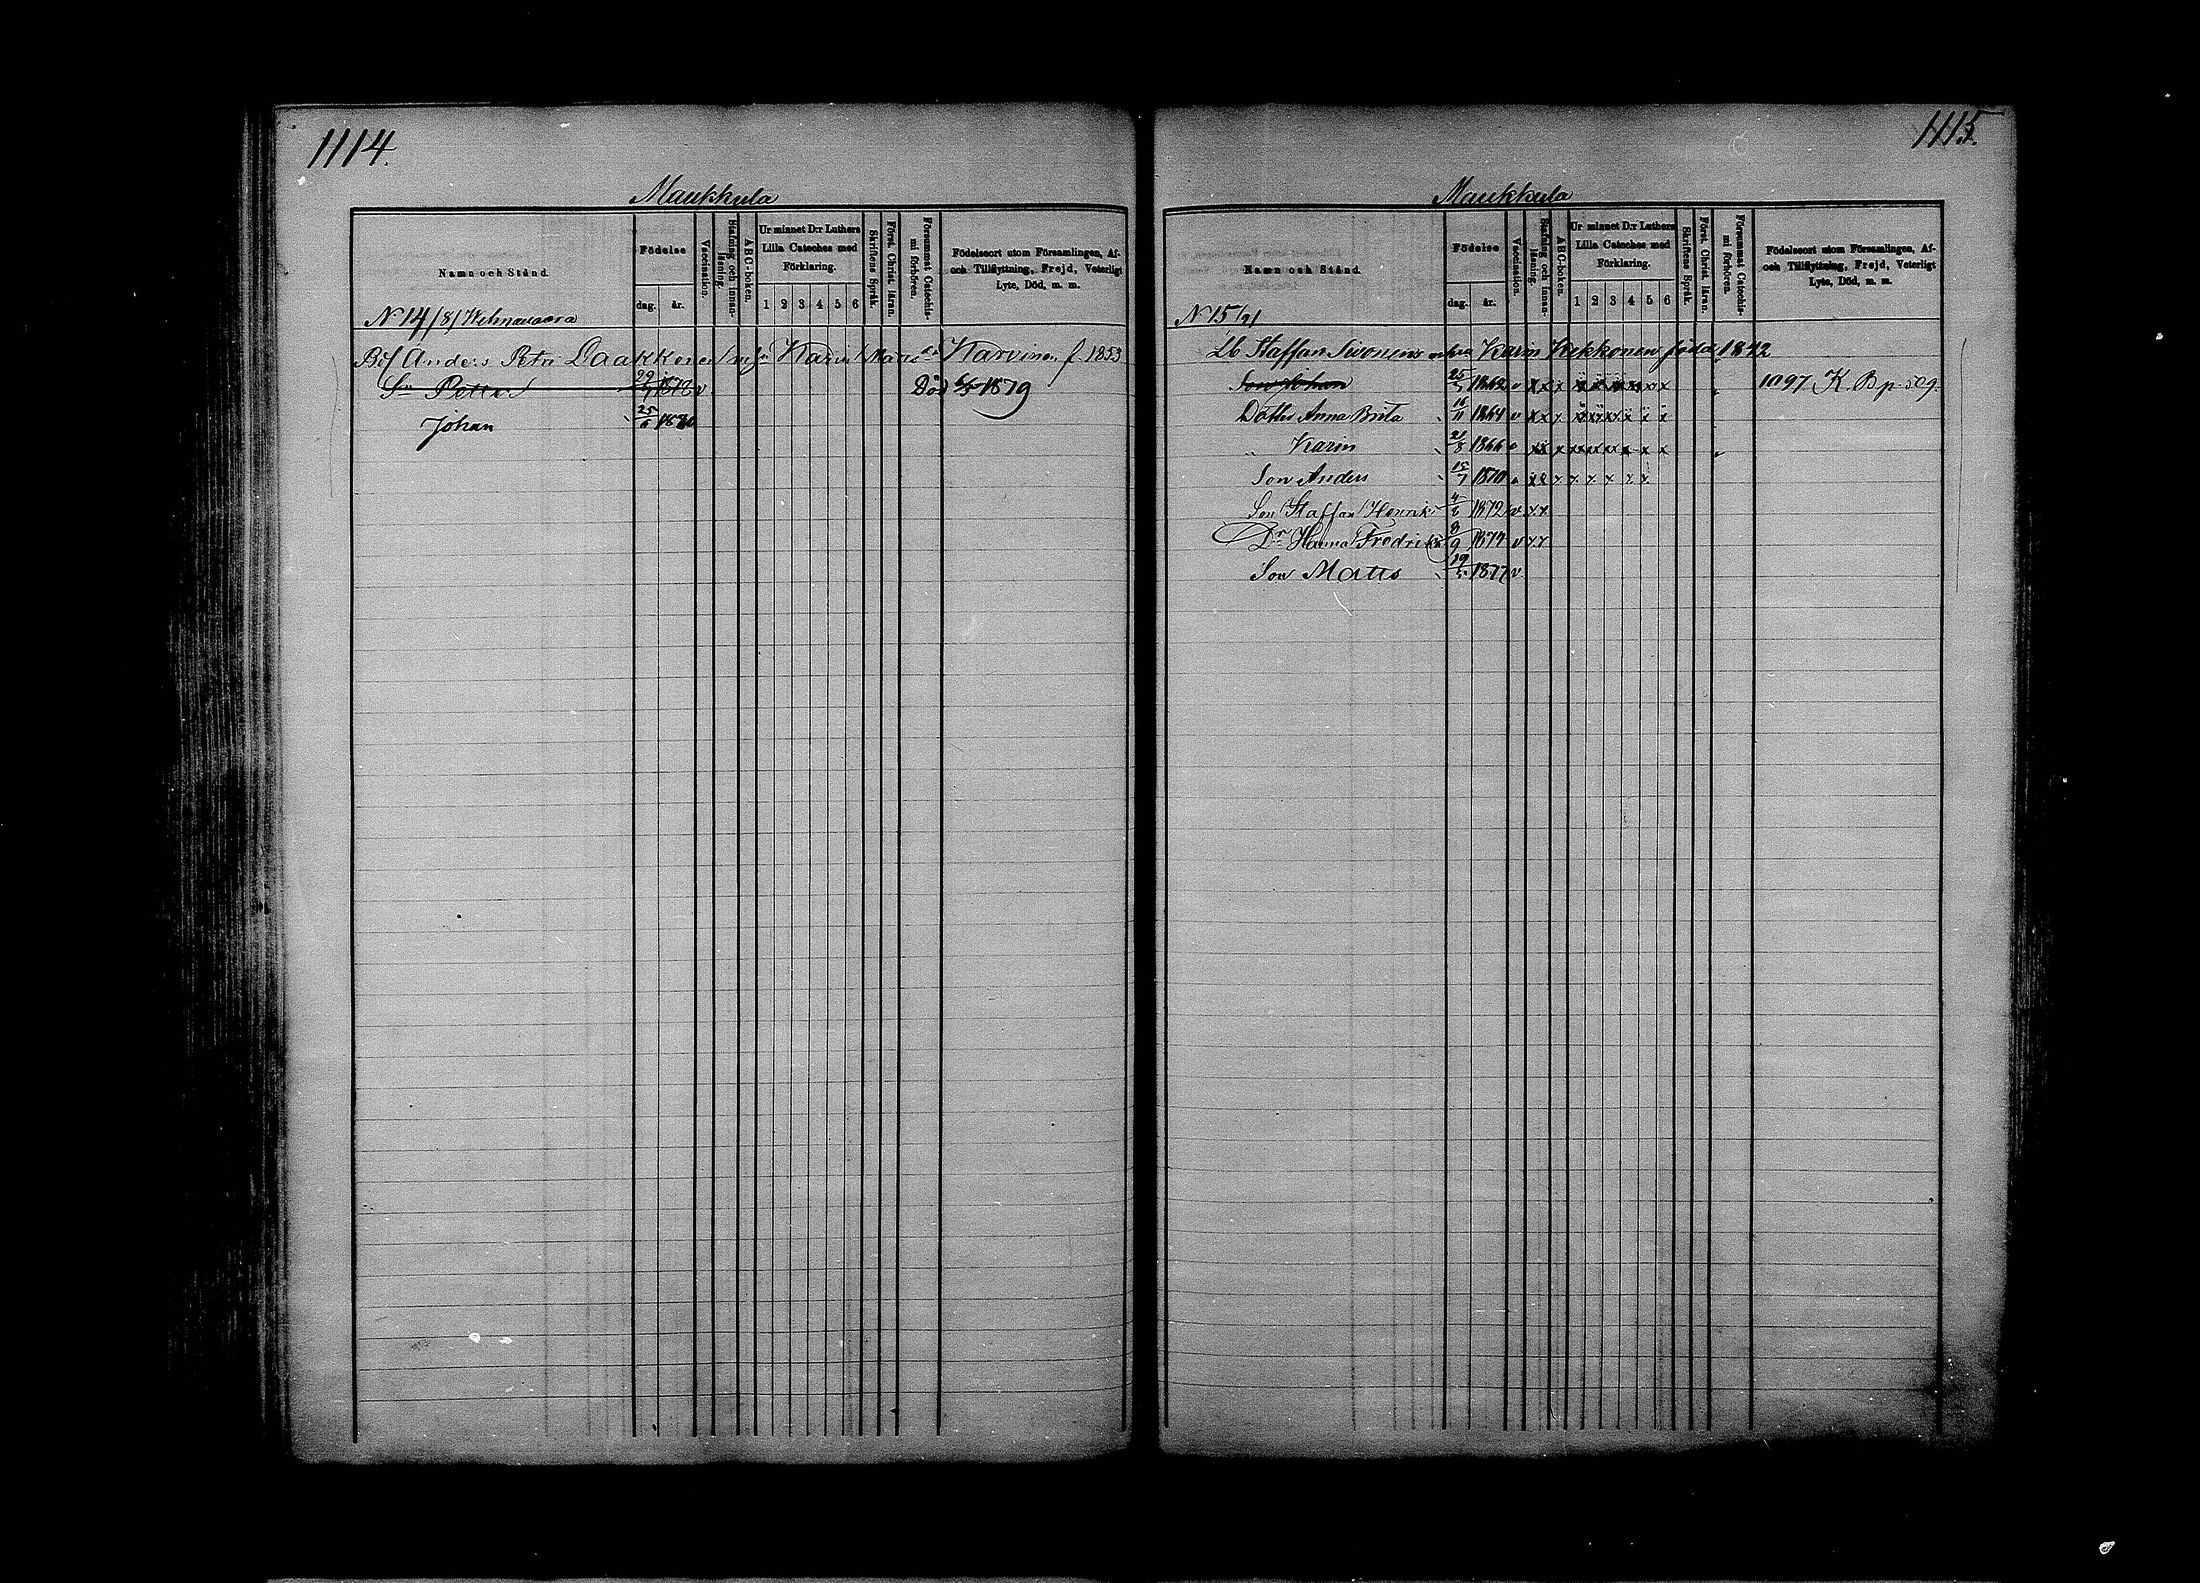 1114.
Maukkula
Namn och Stånd.
Födelse
dag. år.
Vaccination.
Stafning och innan-läsning.
ABC-boken.
Ur minnet D:r Luthers Lilla Cateches med Förklaring.
1 2 3 4 5 6
Skriftens Språk.
Först. Christ. läran.
Försummat Catechis-mi förhören.
Födelseort utom Församlingen, Af- och Tillflyttning, Frejd, Veterligt Lyte, Död, m. m.
N 14 /8/ Wehnavaara
Anders Petri Laakkonen Karin Karvinen f 1853
Sn Petter 1878 v Död 1879
Johan 25/6
1115.
Maukkula
Namn och Stånd.
Födelse
dag. år.
Vaccination.
Stafning och innan-läsning.
ABC-boken.
Ur minnet D:r Luthers Lilla Cateches med Förklaring.
1 2 3 4 5 6
Skriftens Språk.
Först. Christ. läran.
Försummat Catechis-mi förhören.
Födelseort utom Församlingen, Af- och Tillflyttning, Frejd, Veterligt Lyte, Död, m. m.
N 15
Lb Staffan Sivonens enka Karin Kekkonen född 1842
Son Johan 1862 v x x x 1097 K. B p. 509.
Dotter Anna Brita 16/11 1864 v x x x
" Karin 21/8 1866 x x x
Son Anders 15/7 1870 x x x x x x x x
Son Staffan Henrik 1872 v x x
Dr Hanna Fredrika 8/9 1874 v x x
Son Matts 1877 v